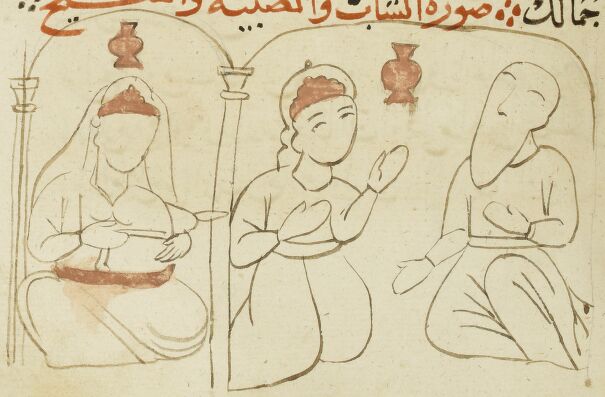 جمالك صورة الشاب والصبية والشيخ